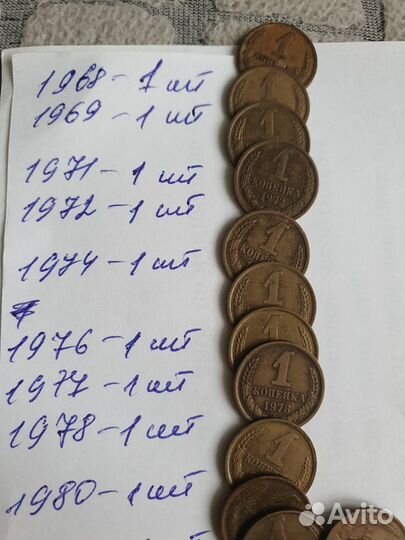 1968 – 1 шт
1969 – 1 шт
1971 – 1 шт
1972 – 1 шт
1974 – 1 шт
1976 – 1 шт
1977 – 1 шт
1978 – 1 шт
1980 – 1 шт
1
1
1
1
КОПЕЙКА
1972
1
1
1
1
КОПЕЙКА
1978
1
Avito